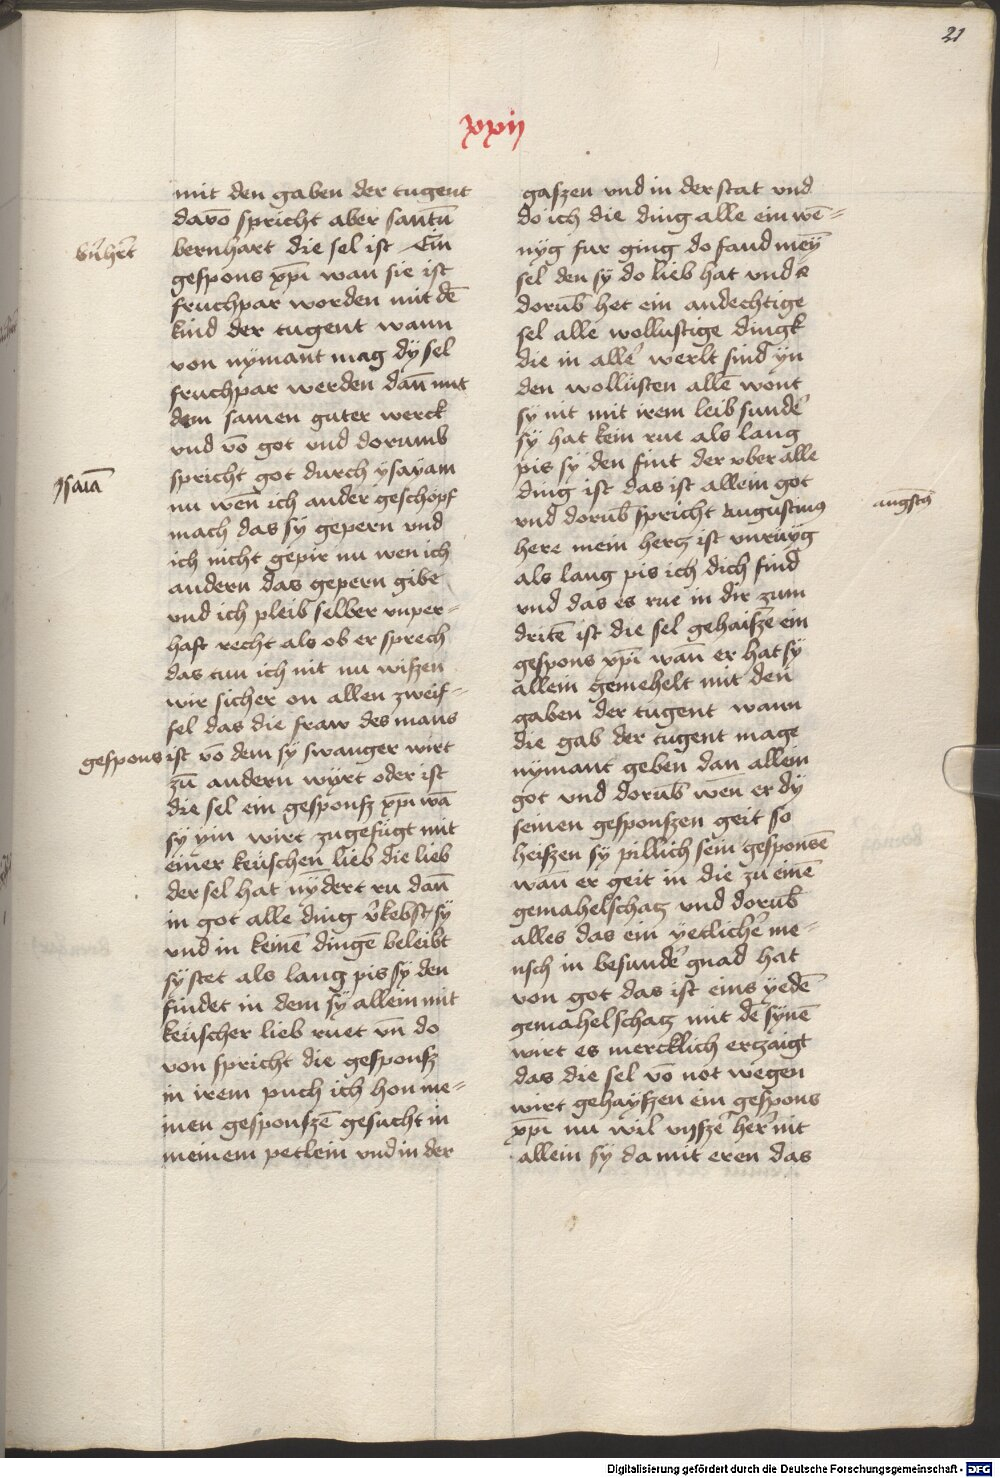 21
xxij
mit den gaben der tugent
davō spricht aber santūs
bernhart die sel ist Ein
gespons xp̄i wan sie ist
fruchpar worden mit dē
kind der tugent wann
von nÿmant mag dÿ sel
fruchpar werden dañ mit
dem samen guter werck
vnd vō got vnd dorumb
spricht got durch ysaÿam
nu wen̄ ich ander geschopf
mach das sÿ gepern vnd
ich nicht gepir nu wen ich
andern das gepern gibe
vnd ich pleib selber vnper=
haft recht als ob er sprech
das tun ich nit nu wiszen
wir sicher on allen zweif=
fel das die fraw des mans
ist vō dem sÿ swanger wirt
zū andern wÿrt oder ist
die sel ein gesponsz xp̄i wā
sÿ ÿm wirt zugefügt mit
einer keuschen lieb die lieb
der sel hat nÿdert ru dañ
in got alle ding v̄kebst sÿ
vnd in keinē dingē beleibt
sÿ stet als lang pis sÿ den
findet in dem sÿ allein mit
keuscher lieb ruet vn̄ do
von spricht die gesponsz
in irem puch ich hon me=
inen gesponszē gesucht in
meinem petlein vnd in der
bn̄hēt
ysaiā
gespons
gaszen vnd in der stat vnd
do ich die ding alle ein wē=
nÿg fur ging do fand meÿ
sel den sÿ do lieb hat vnd
dorub̄ het ein andechtige
sel alle wollustige dingk
die in alle᷑ werlt sind ÿn
den wollüsten allē wont
sÿ nit mit irem leib sunde᷑
sÿ hat kein rue als lang
pis sÿ den fint der vber alle
ding ist das ist allein got
vnd dorub̄ spricht augustinus
here mein hertz ist vnruÿg
als lang pis ich dich find
vnd das es rue in dir zum
dritē ist die sel gehaiszē ein
gespons xp̄i wañ er hat sÿ
allein gemehelt mit den
gaben der tugent wann
die gab der tugent mage
nÿmant geben dan allein
got vnd dorub̄ wen̄ er dÿ
seinen gesponszen geit so
heiszen sÿ pillich sein gesponsē
wañ er geit in die zu einē
gemahelschatz vnd dorub̄
alles das ein ÿetliche᷑ me=
nsch in besunde᷑ gnad hat
von got das ist eins ÿedē
gemahelschatz mit dē sÿnē
wirt es mercklich ertzaigt
das die sel vō not wegen
wirt gehaÿszen ein gespons
xp̄i nu wil vnsze᷑ her᷑ nit
allein sÿ da mit eren das
augstȳ
Digitalisierung gefördert durch die Deutsche Forschungsgemeinschaft - DFG